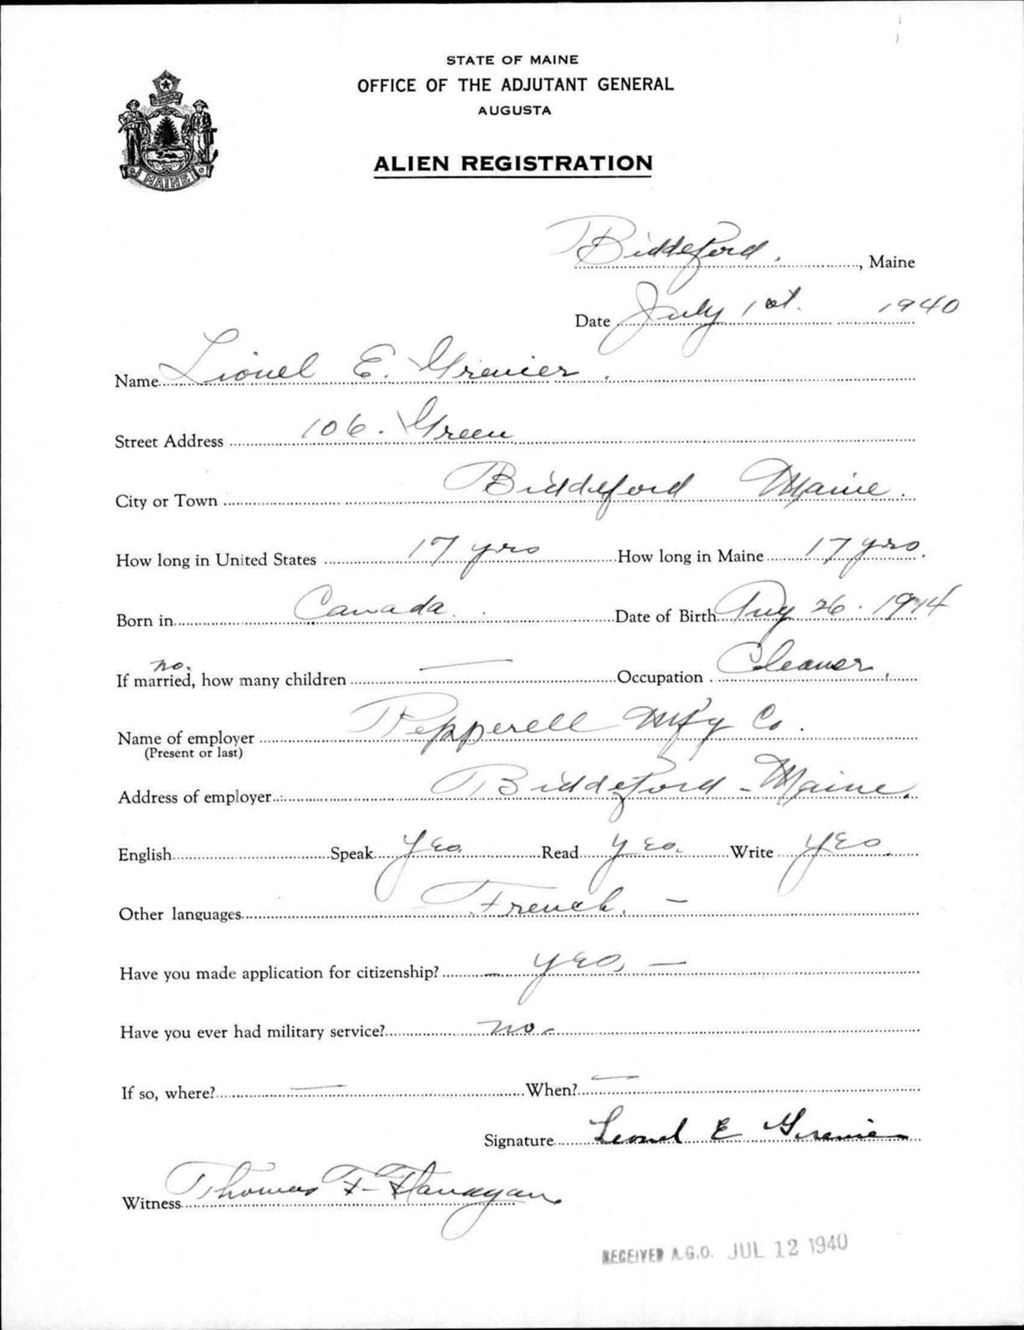 STATE OF MAINE
OFFICE OF THE ADJUTANT GENERAL
AUGUSTA
ALIEN REGISTRATION
MAINE
Biddeford, Maine
Date July 1st. 1940
Name Lionel E. Grenier.
Street Address 106. Green
City or Town Biddeford Maine.
How long in United States 17 yrs How long in Maine 17 yrs.
Born in Canada. Date of Birth Aug 26. 1914
no.
If married, how many children — Occupation Cleaner.
Name of employer Pepperell Mf'g Co.
(Present or last)
Address of employer Biddeford - Maine.
English Speak Yes. Read Yes. Write Yes.
Other languages French. —
Have you made application for citizenship? — Yes, —
Have you ever had military service? no -
If so, where? — When? —
Signature Leonel E Grenier
Witness Thomas F. Flanagan
RECEIVED A.G.O. JUL 12 1940